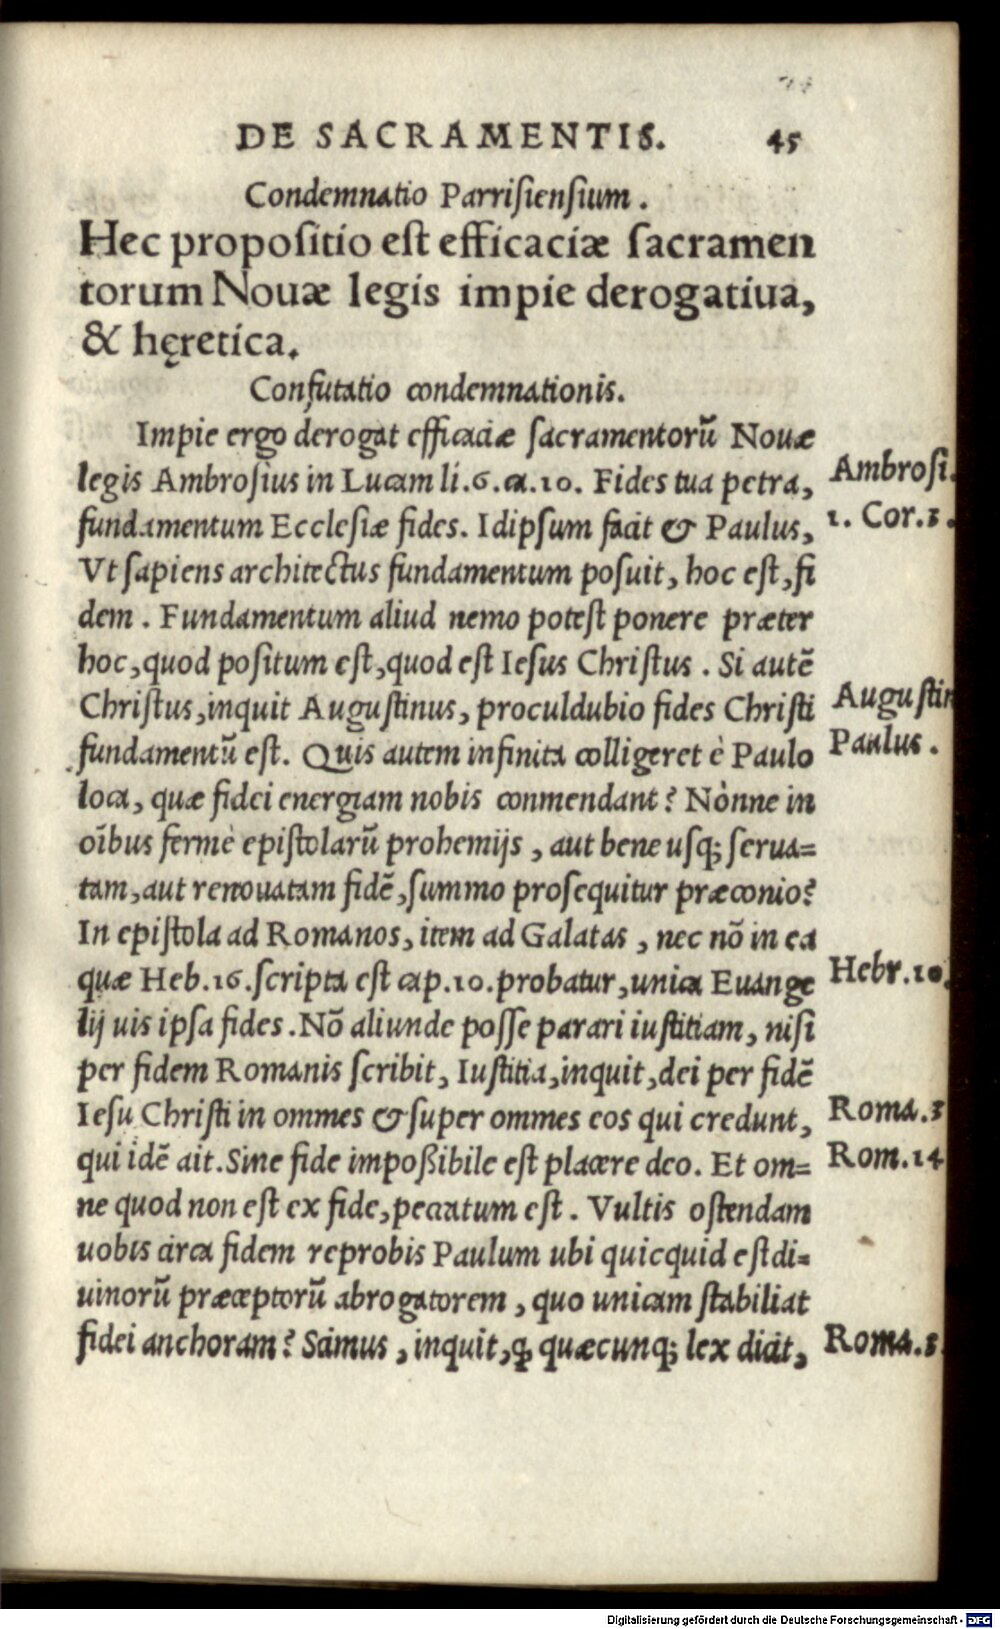 DE SACRAMENTIS. 45
Condemnatio Parrisiensium.
Hec propositio est efficaciæ sacramen
torum Nouæ legis impie derogatiua,
& hęretica.
Confutatio condemnationis.
Impie ergo derogat efficaciæ sacramentorũ Nouæ
legis Ambrosius in Lucam li.6.ca.10. Fides tua petra,
Ambrosi.
fundamentum Ecclesiæ fides. Idipsum facit & Paulus,
1. Cor.3.
Vt sapiens architectus fundamentum posuit, hoc est, fi
dem. Fundamentum aliud nemo potest ponere præter
hoc, quod positum est, quod est Iesus Christus. Si autẽ
Christus, inquit Augustinus, proculdubio fides Christi
Augustin
fundamentũ est. Quis autem infinita colligeret è Paulo
Paulus.
loca, quæ fidei energiam nobis conmendant? Nònne in
oĩbus fermè epistolarũ prohemijs, aut bene usq; serua=
tam, aut renouatam fidẽ, summo prosequitur præconio?
In epistola ad Romanos, item ad Galatas, nec nõ in ea
quæ Heb.16. scripta est cap.10. probatur, unica Euange
Hebr.10.
lij uis ipsa fides. Nõ aliunde posse parari iustitiam, nisi
per fidem Romanis scribit, Iustitia, inquit, dei per fidẽ
Iesu Christi in ommes & super ommes eos qui credunt,
Roma.3
qui idẽ ait. Sine fide impoßibile est placere deo. Et om=
Rom.14
ne quod non est ex fide, peccatum est. Vultis ostendam
uobis circa fidem reprobis Paulum ubi quicquid est di=
uinorũ præceptorũ abrogatorem, quo unicam stabiliat
fidei anchoram? Scimus, inquit, ꝙ quæcunq; lex dicit,
Roma.3.
Digitalisierung gefördert durch die Deutsche Forschungsgemeinschaft - DFG